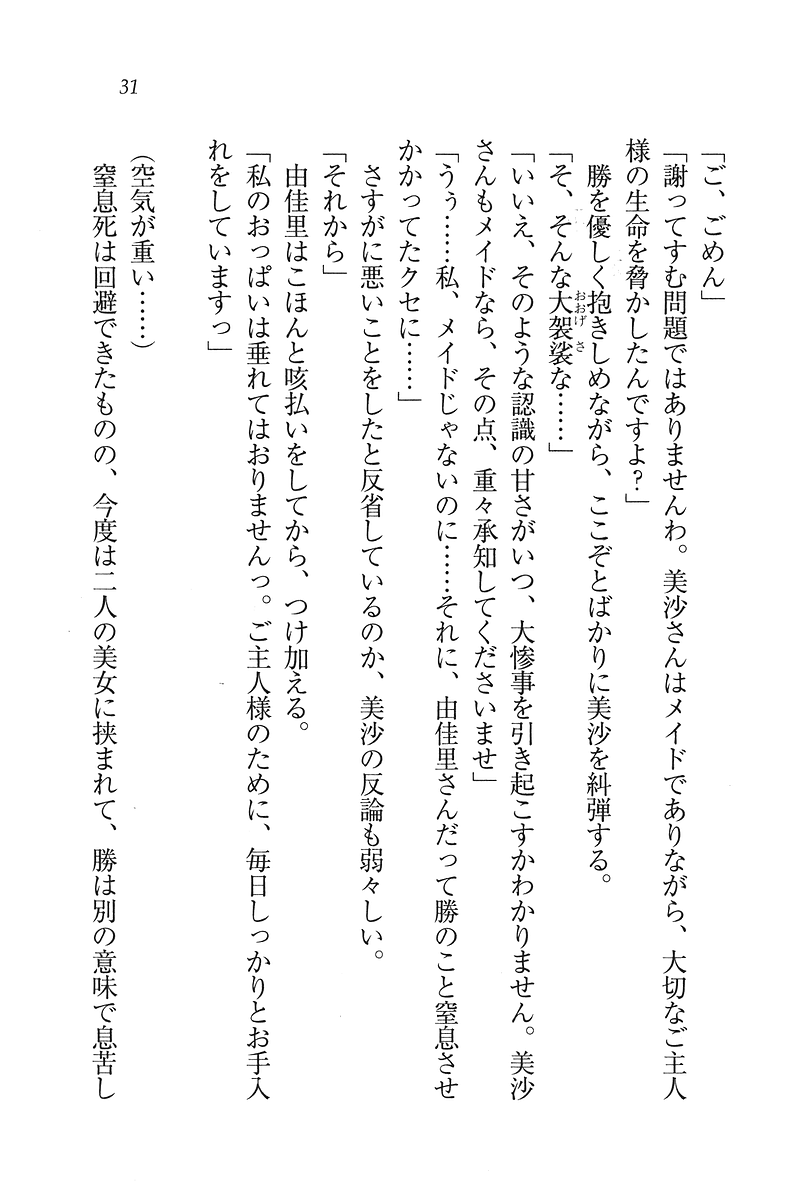 31
「ご、ごめん」
「謝ってすむ問題ではありませんわ。美沙さんはメイドでありながら、大切なご主人
様の生命を脅かしたんですよ？」
勝を優しく抱きしめながら、ここぞとばかりに美沙を糾弾する。
「そ、そんな大袈裟な……」
おおげさ
「いいえ、そのような認識の甘さがいつ、大惨事を引き起こすかわかりません。美沙
さんもメイドなら、その点、重々承知してくださいませ」
「うぅ……私、メイドじゃないのに……それに、由佳里さんだって勝のこと窒息させ
かかってたクセに……」
さすがに悪いことをしたと反省しているのか、美沙の反論も弱々しい。
「それから」
由佳里はこほんと咳払いをしてから、つけ加える。
「私のおっぱいは垂れてはおりませんっ。ご主人様のために、毎日しっかりとお手入
れをしていますっ」
（空気が重い……）
窒息死は回避できたものの、今度は二人の美女に挟まれて、勝は別の意味で息苦し